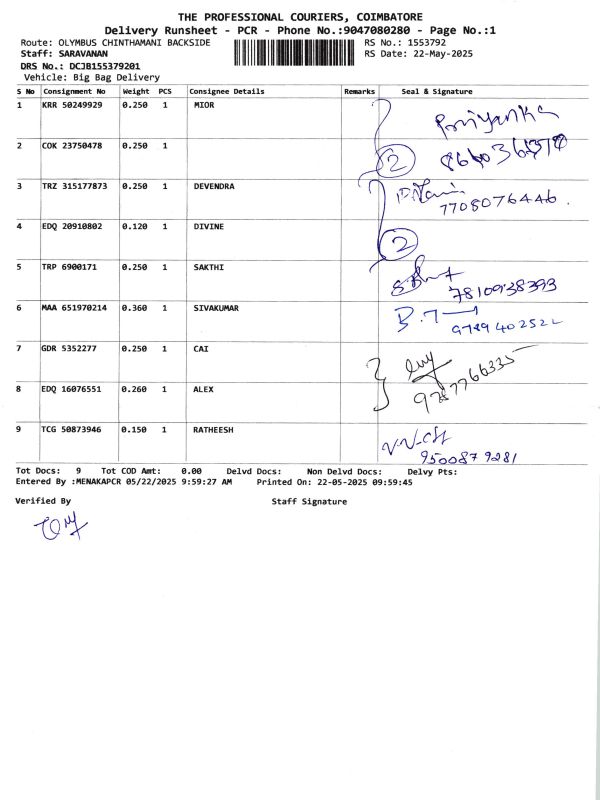 THE PROFESSIONAL COURIERS, COIMBATORE
Delivery Runsheet - PCR - Phone No.:9047080280 - Page No.:1
Route: OLYMBUS CHINTHAMANI BACKSIDE RS No.: 1553792
Staff: SARAVANAN RS Date: 22-May-2025
DRS No.: DCJB155379201
Vehicle: Big Bag Delivery
S No Consignment No Weight PCS Consignee Details Remarks Seal & Signature
1 KRR 50249929 0.250 1 MIOR Priyanka
2 COK 23750478 0.250 1 2
3 TRZ 315177873 0.250 1 DEVENDRA 7708076446.
4 EDQ 20910802 0.120 1 DIVINE 2
5 TRP 6900171 0.250 1 SAKTHI 7810938393
6 MAA 651970214 0.360 1 SIVAKUMAR 9789402522
7 GDR 5352277 0.250 1 CAI
8 EDQ 16076551 0.260 1 ALEX
9 TCG 50873946 0.150 1 RATHEESH 9500879281
Tot Docs: 9 Tot COD Amt: 0.00 Delvd Docs: Non Delvd Docs: Delvy Pts:
Entered By :MENAKAPCR 05/22/2025 9:59:27 AM Printed On: 22-05-2025 09:59:45
Verified By Staff Signature